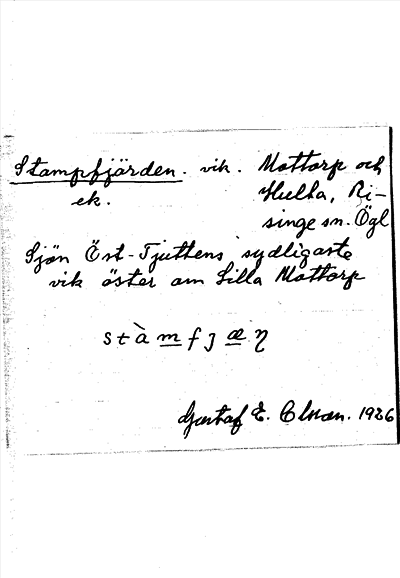 Stampfjärden. vik. Mottorp och
ek. Hulta, Ri-
singe sn. Ögl
Sjön Öst-Tjuttens sydligaste
vik öster om Lilla Mottorp
stàmfjæŋ
Gustaf E. Olsson. 1926